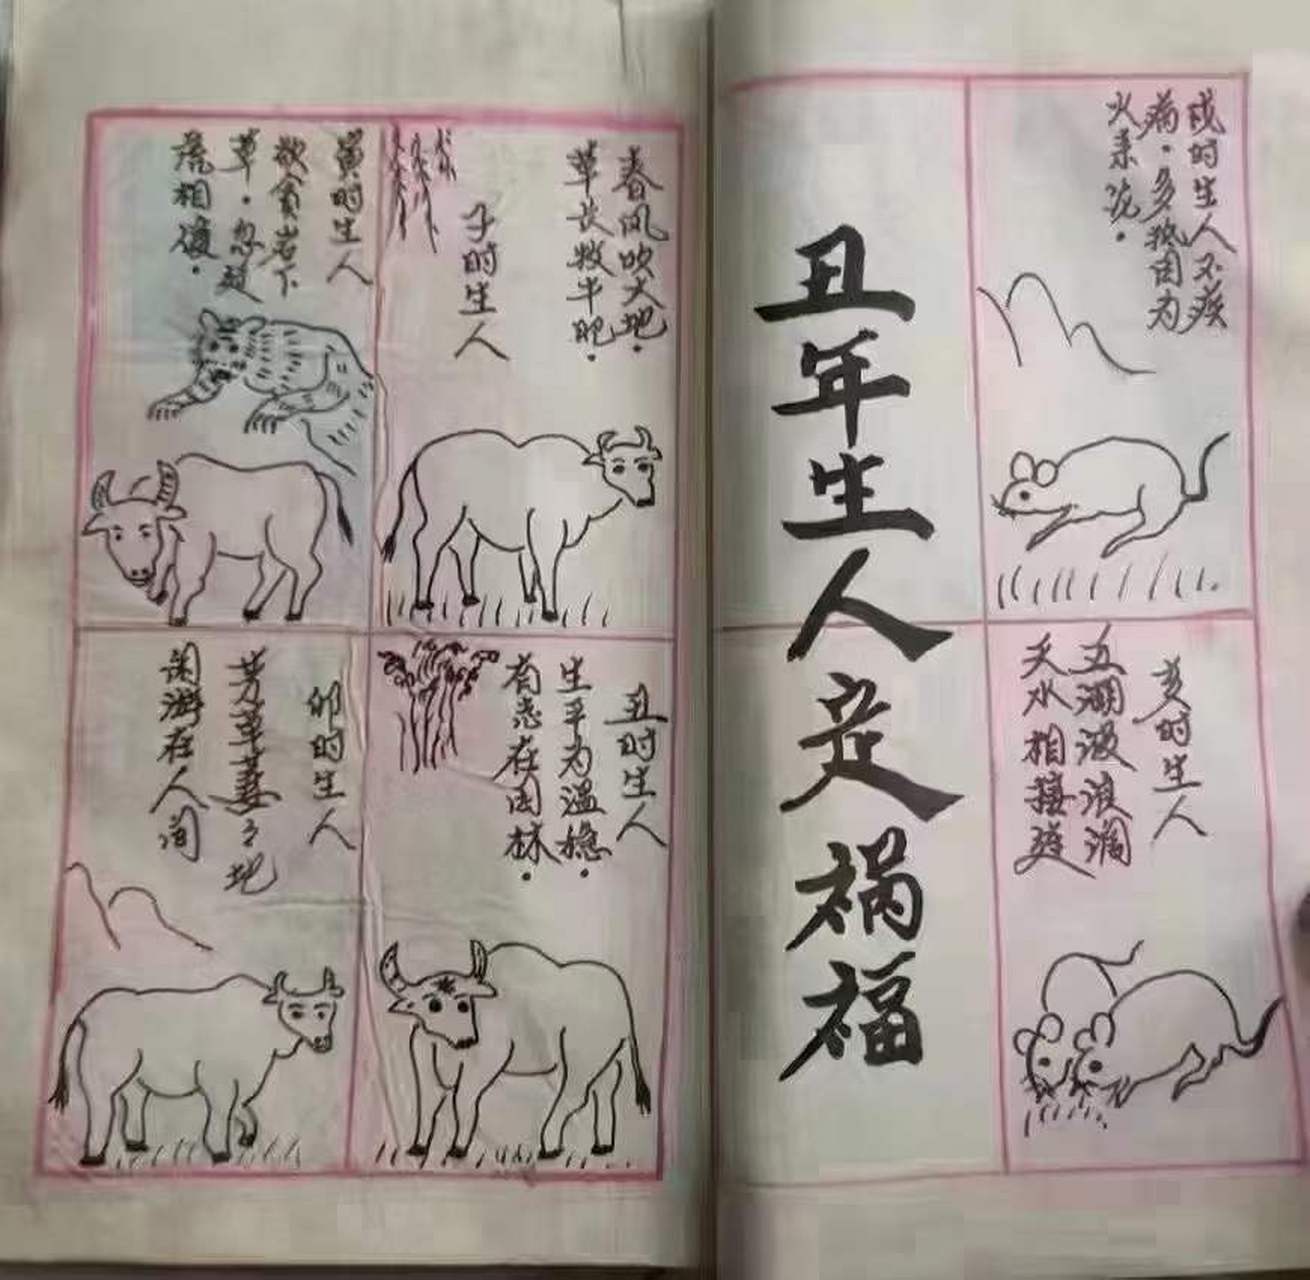 戌时生人不疾
病·多犹因为
火来说·
亥时生人
五湖波浪滔
天水相接连
丑年生人定祸福
春风吹大地·
草长牧牛肥·
子时生人
丑时生人
生平为温稳·
有志在园林·
寅时生人
欲食岩下
草·忽被
虎相侵·
卯时生人
芳草萋々地
闲游在人间